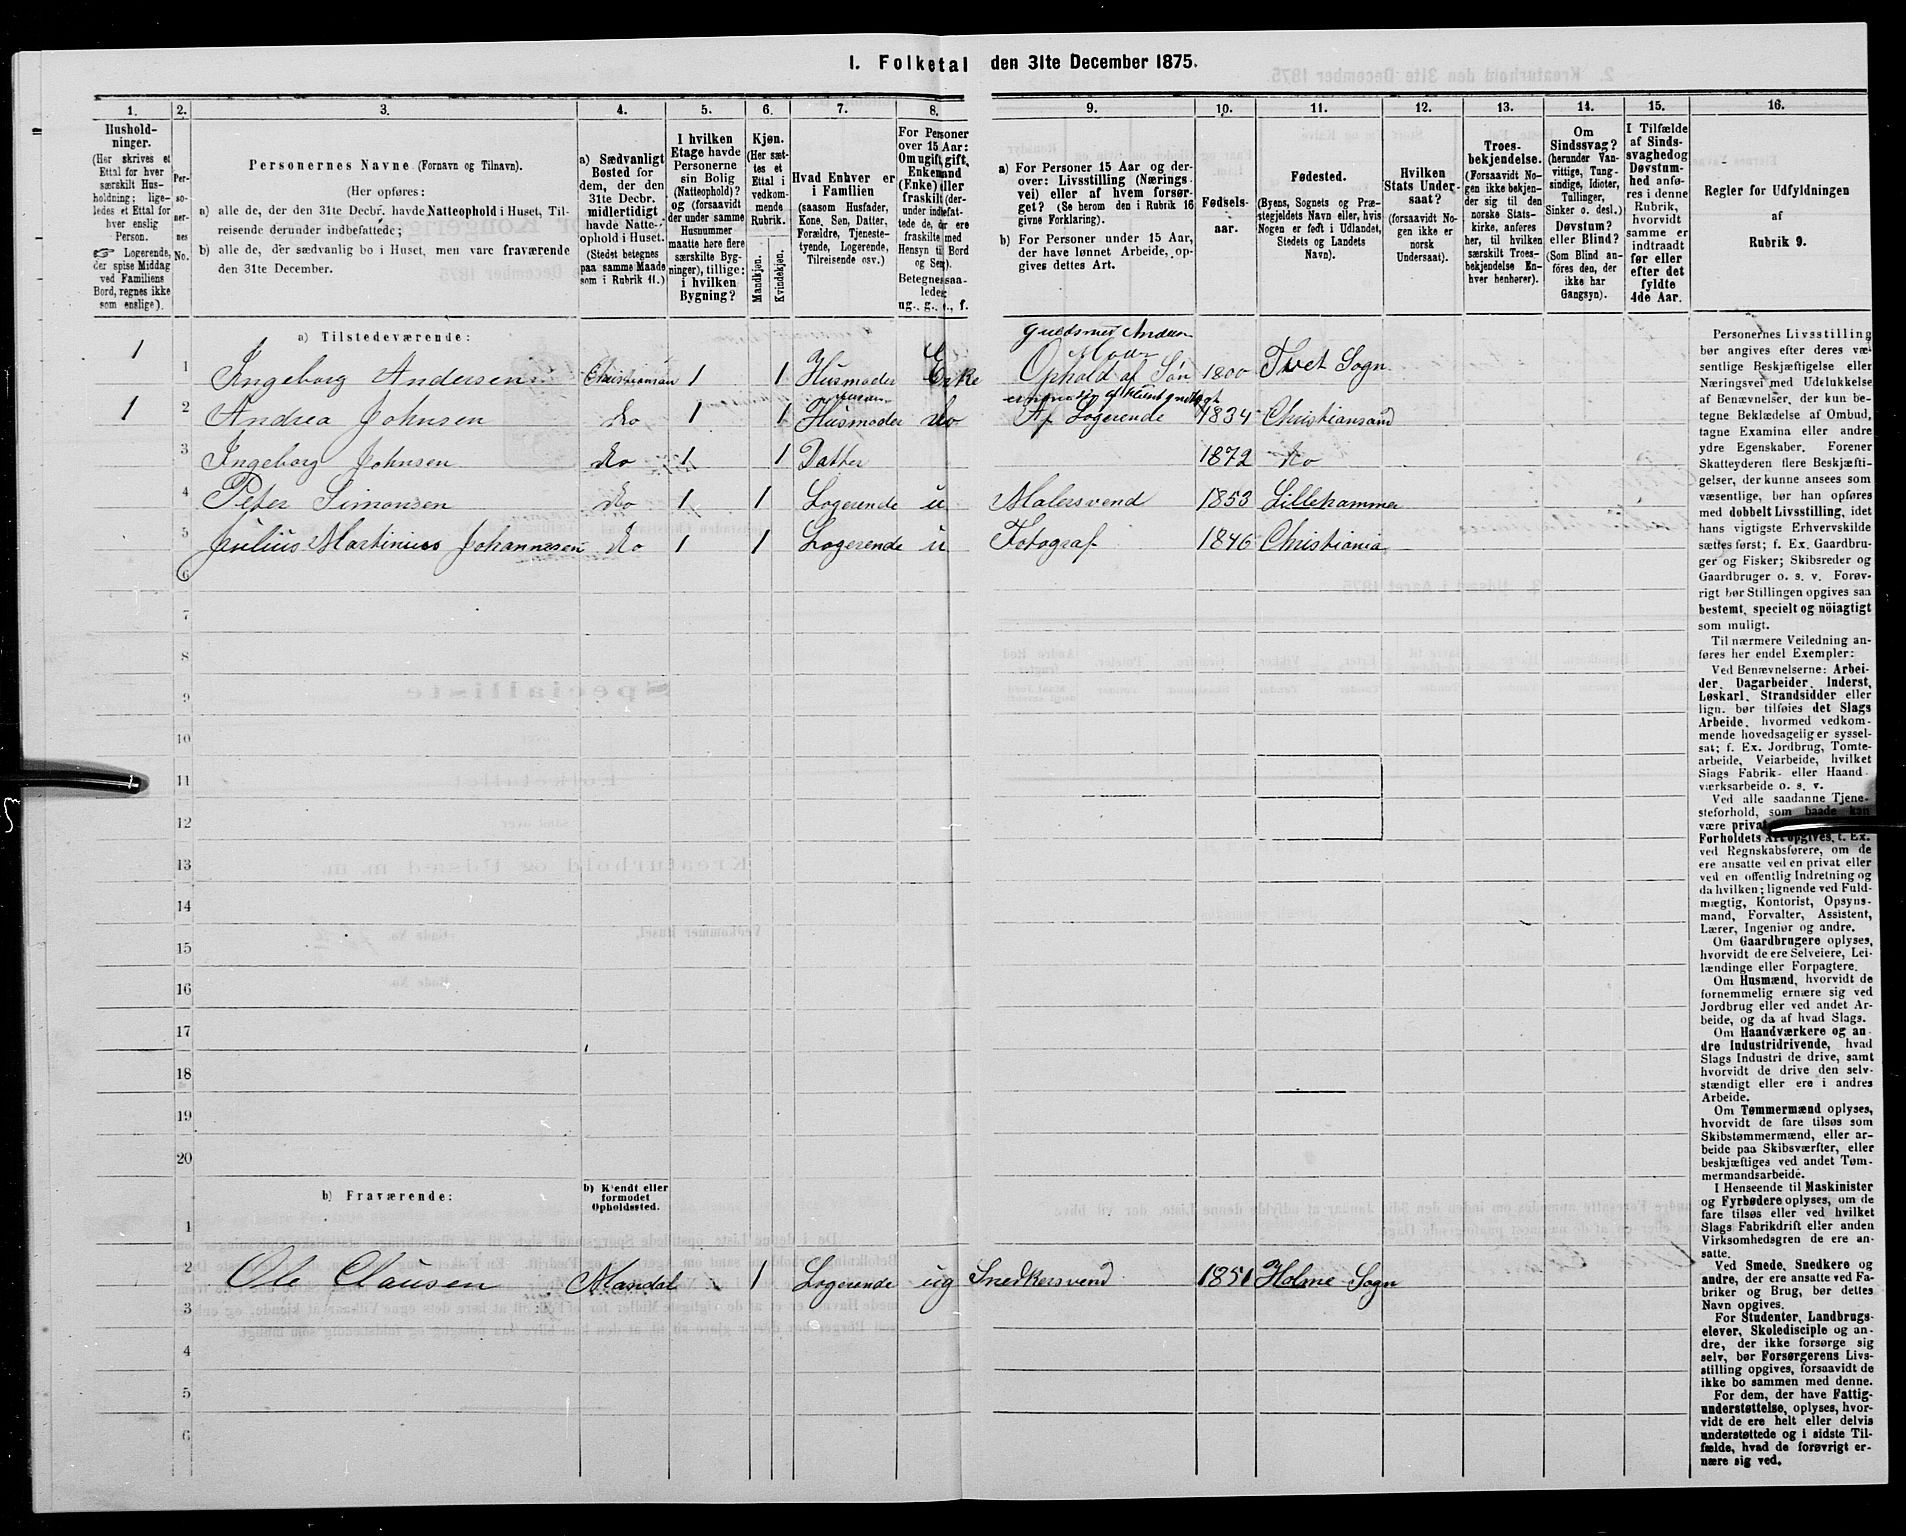 1. Folketal den 31te December 1875.
1. 2. 3. 4. 5. 6. 7. 8. 9. 10. 11. 12. 13. 14. 15. 16.
Hushold-
ninger.
(Her skrives et
Ettal for hver
særskilt Hus-
holdning; lige-
ledes et Ettal for
hver enslig
Person.
☞ Logerende,
der spise Middag
ved Familiens
Bord, regnes ikke
som enslige).
Per-
so-
ner-
nes
No.
Personernes Navne (Fornavn og Tilnavn).
(Her opføres:
a) alle de, der den 31te Decbr. havde Natteophold i Huset, Til-
reisende derunder indbefattede;
b) alle de, der sædvanlig bo i Huset, men vare fraværende
den 31te December.
a) Sædvanligt
Bosted for
dem, der den
31te Decbr.
midlertidigt
havde Natte-
ophold i Huset.
(Stedet betegnes
paa samme Maade
som i Rubrik 11.)
I hvilken
Etage havde
Personerne
sin Bolig
(Natteophold)?
og (forsaavidt
der under samme
Husnummer
maatte høre flere
særskilte Byg-
ninger), tillige:
i hvilken
Bygning?
Kjøn.
(Her sæt-
tes et
Ettal i
vedkom-
mende
Rubrik.
Mandkjøn.
Kvindekjøn.
Hvad Enhver er
i Familien
(saasom Husfader,
Kone, Søn, Datter,
Forældre, Tjeneste-
tyende, Logerende,
Tilreisende osv.)
For Personer
over 15 Aar:
Om ugift, gift,
Enkemand
(Enke) eller
fraskilt (der-
under indbefat-
tede de, der ere
fraskilte med
Hensyn til Bord
og Seng).
Betegnes saa-
ledes:
ug., g., e., f.
a) For Personer 15 Aar og der-
over: Livsstilling (Nærings-
vei) eller af hvem forsør-
get? (Se herom den i Rubrik 16
givne Forklaring).
b) For Personer under 15 Aar,
der have lønnet Arbeide, op-
gives dettes Art.
Fødsels-
aar.
Fødested.
(Byens, Sognets og Præ-
stegjeldets Navn eller, hvis
Nogen er født i Udlandet,
Stedets og Landets
Navn).
Hvilken
Stats Under-
saat?
(forsaavidt No-
gen ikke er
norsk
Undersaat).
Troes-
bekjendelse.
(Forsaavidt No-
gen ikke bekjen-
der sig til den
norske Stats-
kirke, anføres
her, til hvilken
særskilt Troes-
bekjendelse En-
hver henhører).
Om
Sindssvag?
(herunder Van-
vittige, Tung-
sindige, Idioter,
Tullinger,
Sinker o. desl.)
Døvstum?
eller Blind?
(Som Blind an-
føres den, der
ikke har
Gangsyn).
I Tilfælde
af Sinds-
svaghed og
Døvstum-
hed anfø-
res i denne
Rubrik,
hvorvidt
samme er
indtraadt
før eller
efter det
fyldte
4de Aar.
Regler for Udfyldningen
af
Rubrik 9.
a) Tilstedeværende:
1 1 Ingeborg Andersen Christiansand 1 1 Husmoder Enke Moder Ophold af Søn 1800 Tvet Sogn
1 2 Andrea Johnsen do 1 1 Husmoder do Af Logerende 1834 Christiansand
3 Ingeborg Johnsen do 1 1 Datter 1872 do
4 Peter Simonsen do 1 1 Logerende u Malersvend 1853 Lillehammer
5 Julius Martinius Johannesen do 1 1 Logerende u Fotograf 1846 Christiania
6
7
8
9
10
11
12
13
14
15
16
17
18
19
20
b) Fraværende:
b) Kjendt eller
formodet
Opholdssted.
1
2 Ole Clausen Mandal 1 Logerende ug Snedkersvend 1851 Holme Sogn
3
4
5
6
Personernes Livsstilling
bør angives efter deres væ-
sentlige Beskjæftigelse eller
Næringsvei med Udelukkelse
af Benævnelser, der kun be-
tegne Beklædelse af Ombud,
tagne Examina eller andre
ydre Egenskaber. Forener
Skatteyderen flere Beskjæfti-
gelser, der kunne ansees som
væsentlige, bør han opføres
med dobbelt Livsstilling, idet
hans vigtigste Erhvervskilde
sættes først; f. Ex. Gaardbru-
ger og Fisker; Skibsreder og
Gaardbruger o. s. v. Forøv-
rigt bør Stillingen opgives saa
bestemt, specielt og nöiagtigt
som muligt.
Til nærmere Veiledning an-
føres her endel Exempler:
Ved Benævnelserne: Arbei-
der, Dagarbeider, Inderst,
Løskarl, Strandsidder eller
lign. bør tilføies det Slags
Arbeide, hvormed vedkom-
mende hovedsagelig er syssel-
sat; f. Ex. Jordbrug, Tomte-
arbeide, Veiarbeide, hvilket
Slags Fabrik- eller Haand-
værksarbeide o. s. v.
Ved alle saadanne Tjene-
steforhold, som baade kan
være privat
Forholdets Art opgives, f. Ex.
ved Regnskabsførere, om de
ere ansatte ved en privat eller
ved en offentlig Indretning og
da hvilken; lignende ved Fuld-
mægtig, Kontorist, Opsyns-
mand, Forvalter, Assistent,
Lærer, Ingeniør og andre.
Om Gaardbrugere oplyses,
hvorvidt de ere Selveiere, Lei-
lændinge eller Forpagtere.
Om Husmænd, hvorvidt de
fornemmelig ernære sig ved
Jordbrug eller ved andet Ar-
beide, og da af hvad Slags.
Om Haandværkere og an-
dre Industridrivende, hvad
Slags Industri de drive, samt
hvorvidt de drive den selv-
stændigt eller ere i andres
Arbeide.
Om Tømmermænd oplyses,
hvorvidt de fare tilsøs som
Skibstømmermænd, eller ar-
beide paa Skibsværfter, eller
beskjæftiges ved andet Tøm-
mermandsarbeide.
I Henseende til Maskinister
og Fyrbødere oplyses, om de
fare tilsøs eller ved hvilket
Slags Fabrikdrift eller anden
Virksomhedsgren de ere an-
satte.
Ved Smede, Snedkere og
andre, der ere ansatte ved Fa-
briker og Brug, bør dettes
Navn opgives.
For Studenter, Landbrugs-
elever, Skoledisciple og an-
dre, der ikke forsørge sig
selv, bør Forsørgerens Livs-
stilling opgives, forsaavidt de
ikke bo sammen med denne.
For dem, der have Fattig-
understøttelse, oplyses, hvor-
vidt de ere helt eller delvis
understøttede og i sidste Til-
fælde, hvad de forøvrigt er-
nære sig ved.